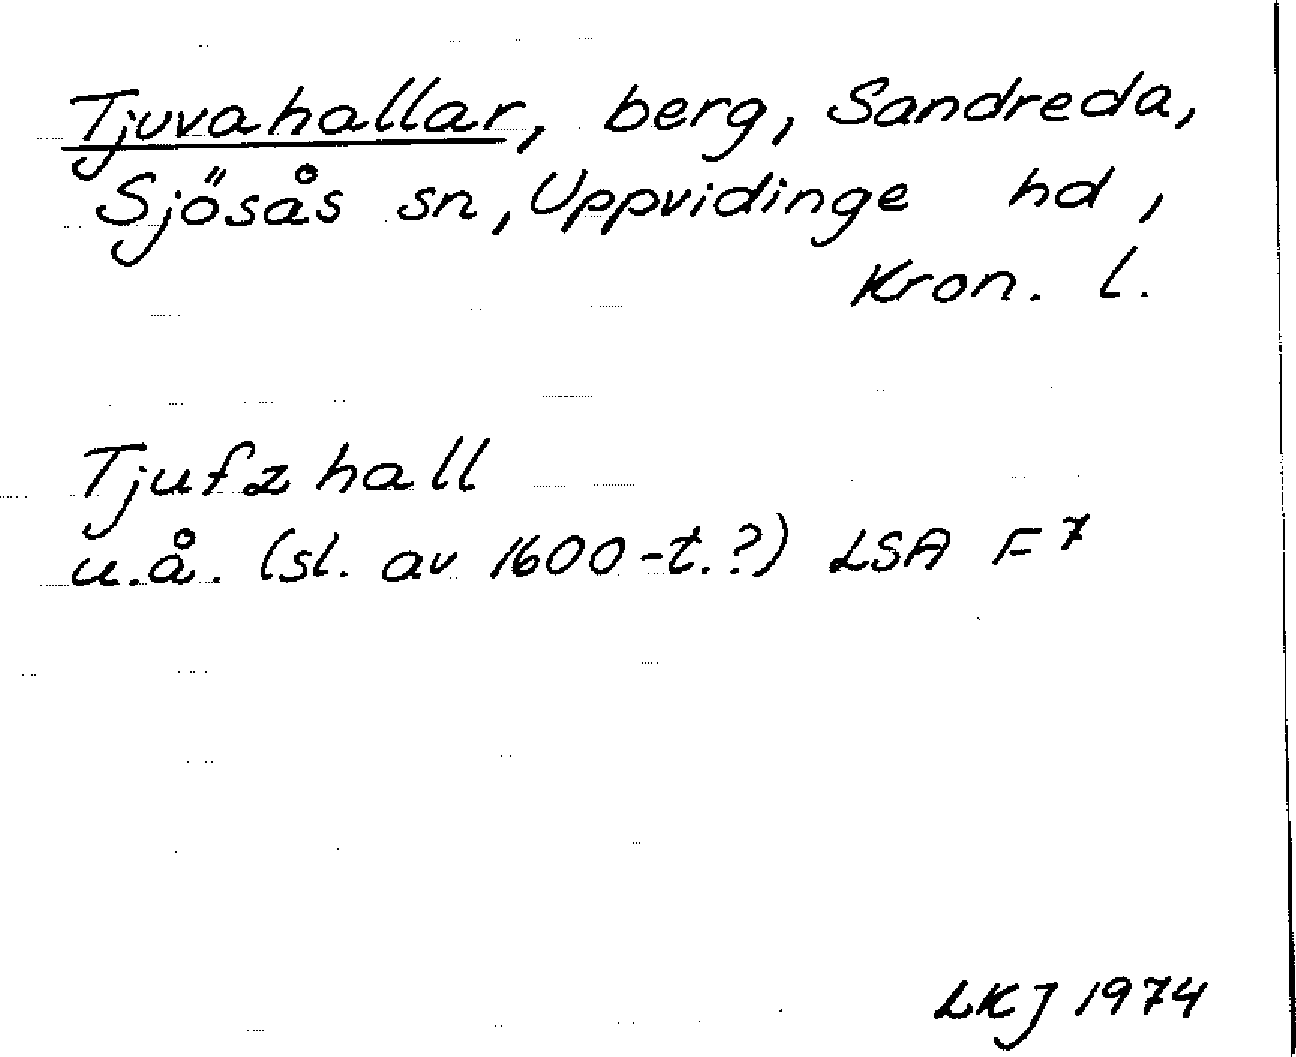 Tjuvahallar, berg, Sandreda,
Sjösås sn, Uppvidinge hd,
Kron. l.
Tjufz hall
u.å. (sl. av 1600-t.?) LSA F7
LKJ 1974